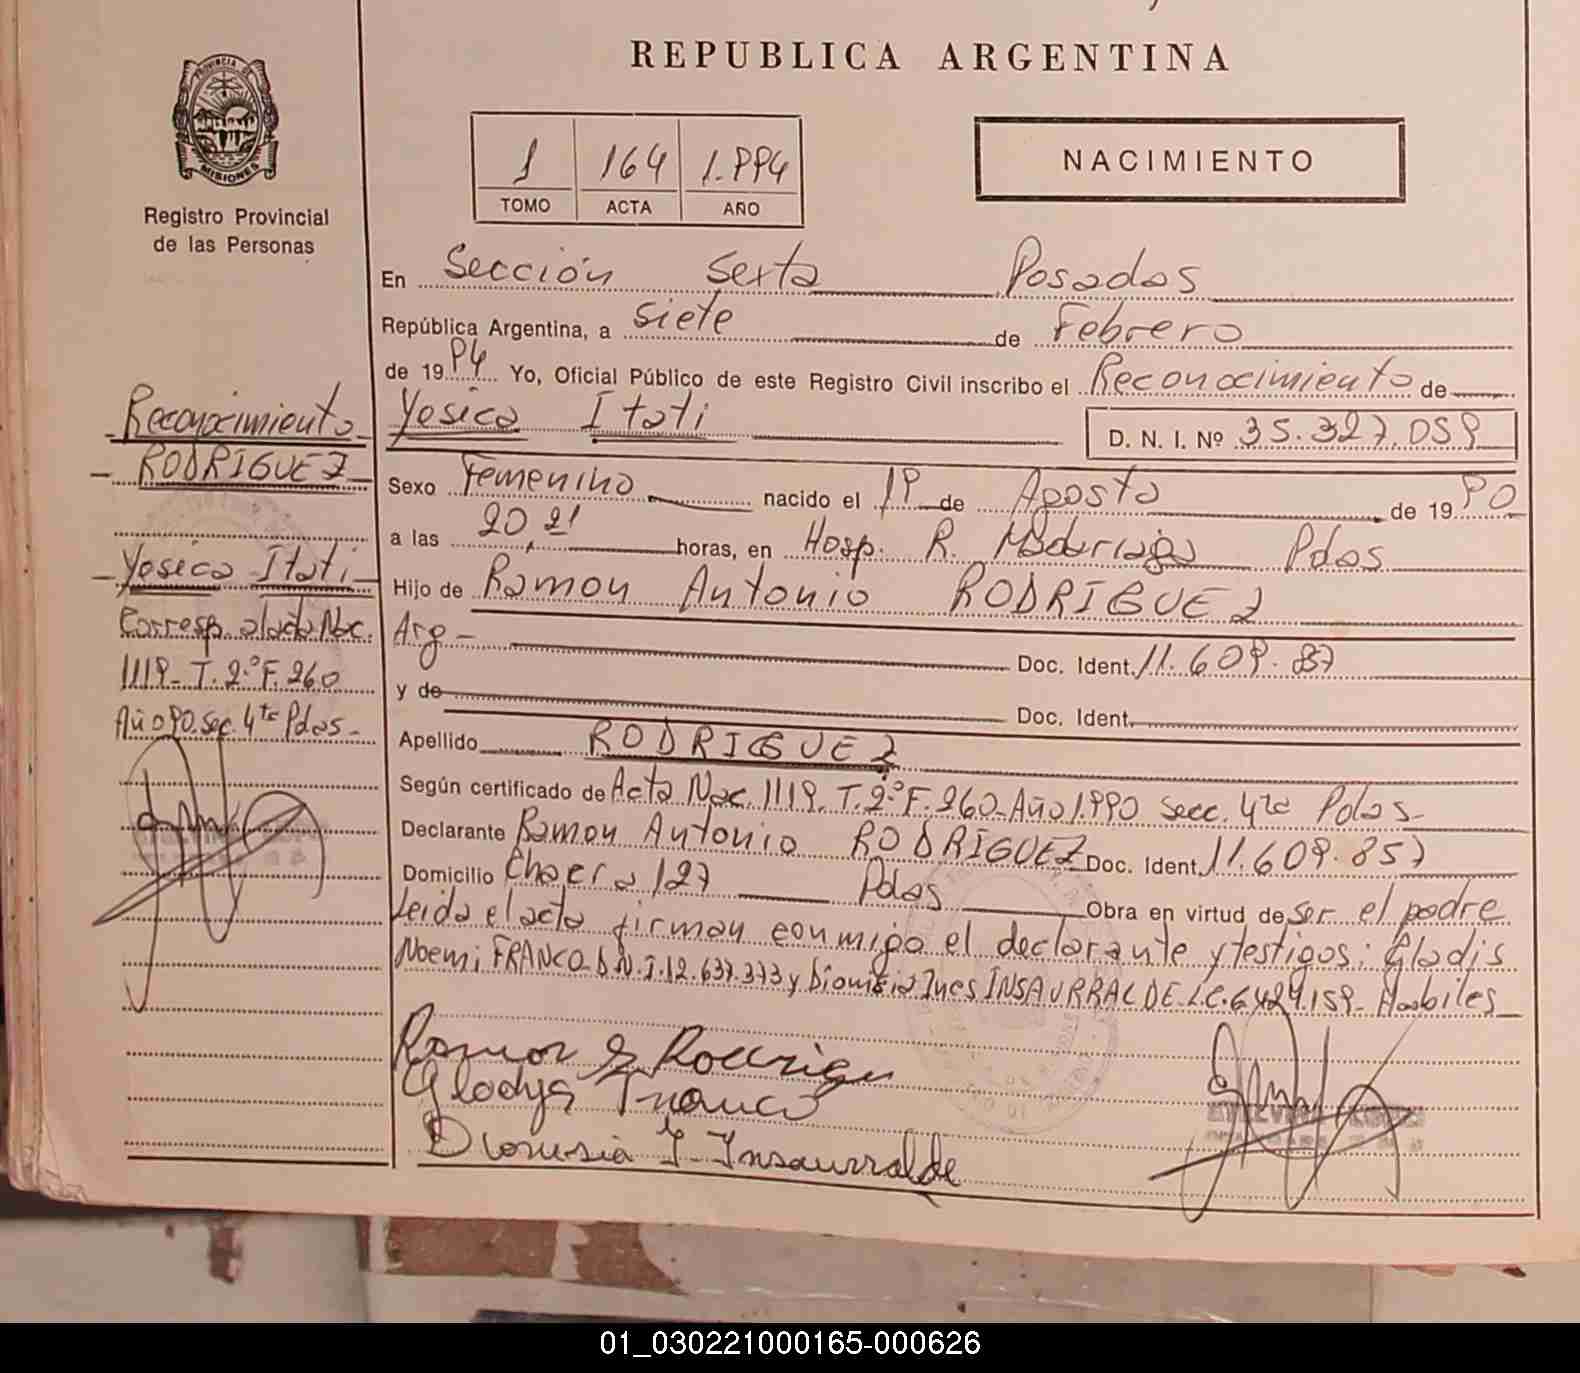 REPUBLICA ARGENTINA
PROVINCIA DE MISIONES
Registro Provincial
de las Personas
1 164 1.994
TOMO ACTA AÑO
NACIMIENTO
En Sección Sexta Posadas
República Argentina, a siete de Febrero
de 1994 Yo, Oficial Público de este Registro Civil inscribo el Reconocimiento de
Yesica Itati D. N. I. Nº 35.327.059
Sexo Femenino nacido el 19 de Agosto de 1990
a las 20,21 horas, en Hosp. R. Madariaga Pdas
Hijo de Ramon Antonio RODRIGUEZ
Arg - Doc. Ident. 11.609.857
y de Doc. Ident.
Apellido RODRIGUEZ
Según certificado de Acta Nac. 1119. T. 2º F. 260 - Año 1.990 Secc. 4ta Pdas-
Declarante Ramon Antonio RODRIGUEZ Doc. Ident. 11.609.857
Domicilio Chacra 127 Pdas Obra en virtud de ser el padre
Leida el acta firman conmigo el declarante y testigos: Gladis
Noemi FRANCO D.N.I. 12.637.373 y Dionisia Ines INSAURRALDE L.C. 6.424.159 - Habiles
Reconocimiento
RODRIGUEZ
Yesica Itati
Corresp. al acta Nac.
1119 - T. 2º F. 260
Año 90. Sec. 4ta Pdas -
Gladys Franco
Dionisia I. Insaurralde
01_030221000165-000626